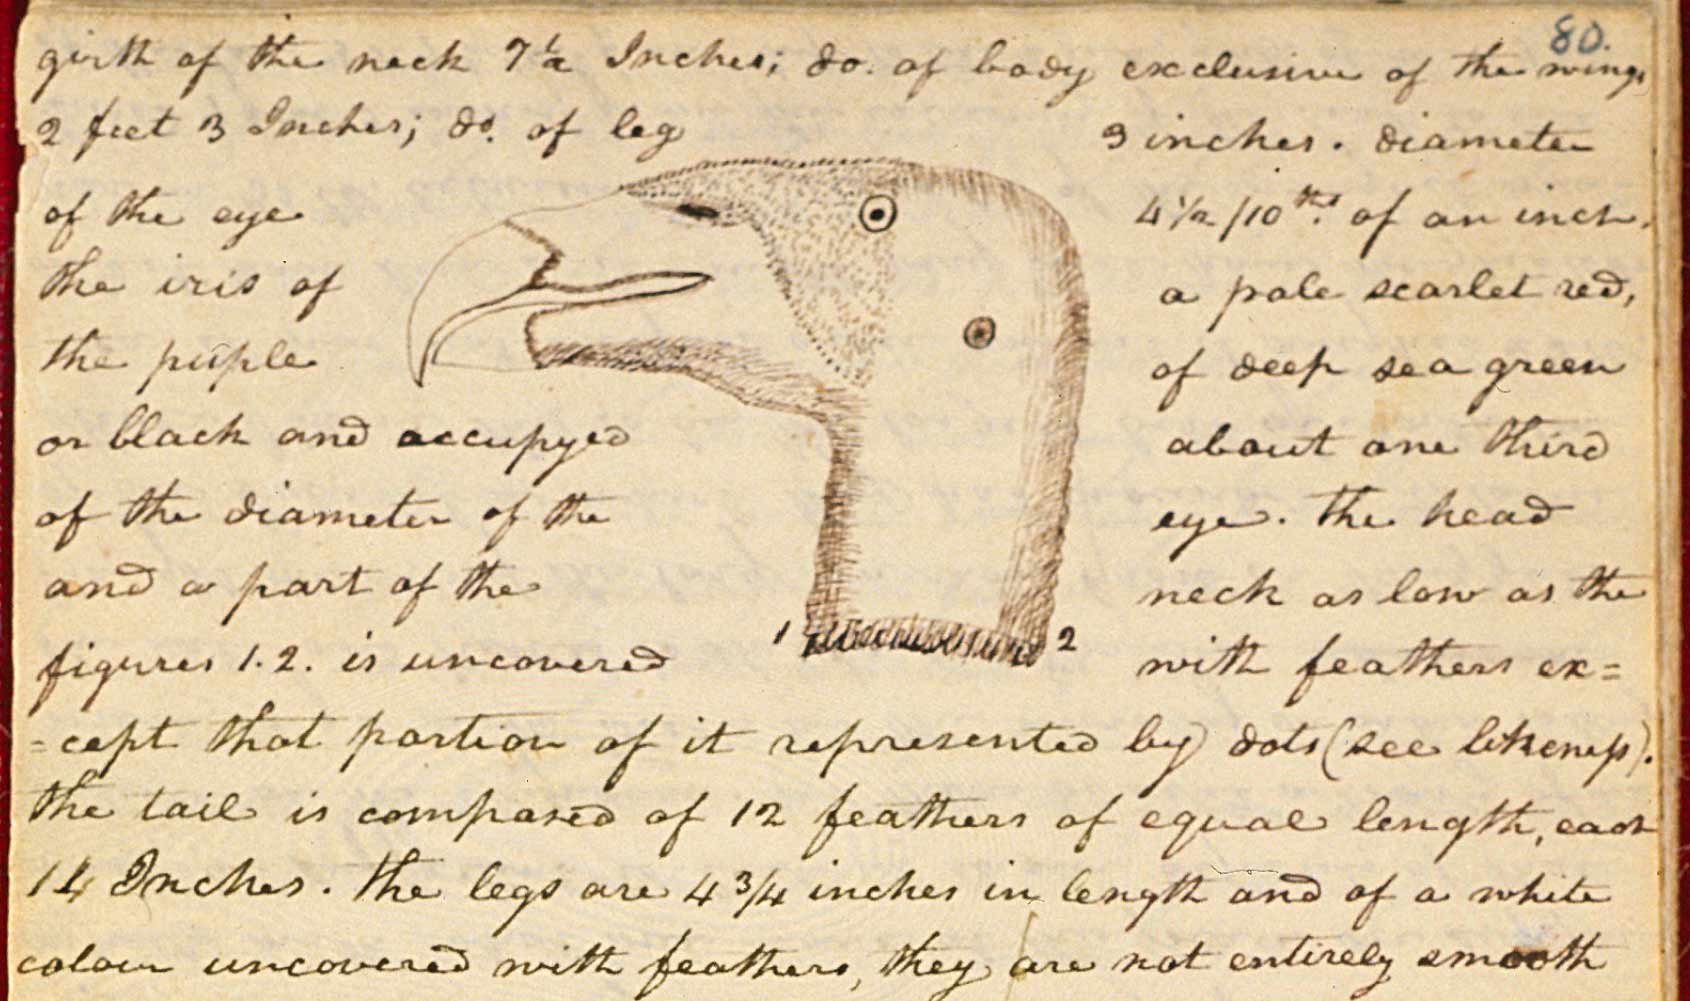 80.
girth of the neck 7½ Inches; do. of body exclusive of the wings
2 feet 3 Inches; do. of leg 3 inches. diameter
of the eye 4½/10ths. of an inch.
the iris of a pale scarlet red,
the puple of deep sea green
or black and occupyed about one third
of the diameter of the eye. the head
and a part of the neck as low as the
1 2
figures 1.2. is uncovered with feathers ex=
=cept that portion of it represented by dots (see likeness).
the tail is composed of 12 feathers of equal length, each
14 Inches. the legs are 4¾ inches in length and of a white
colour uncovered with feathers, they are not entirely smooth